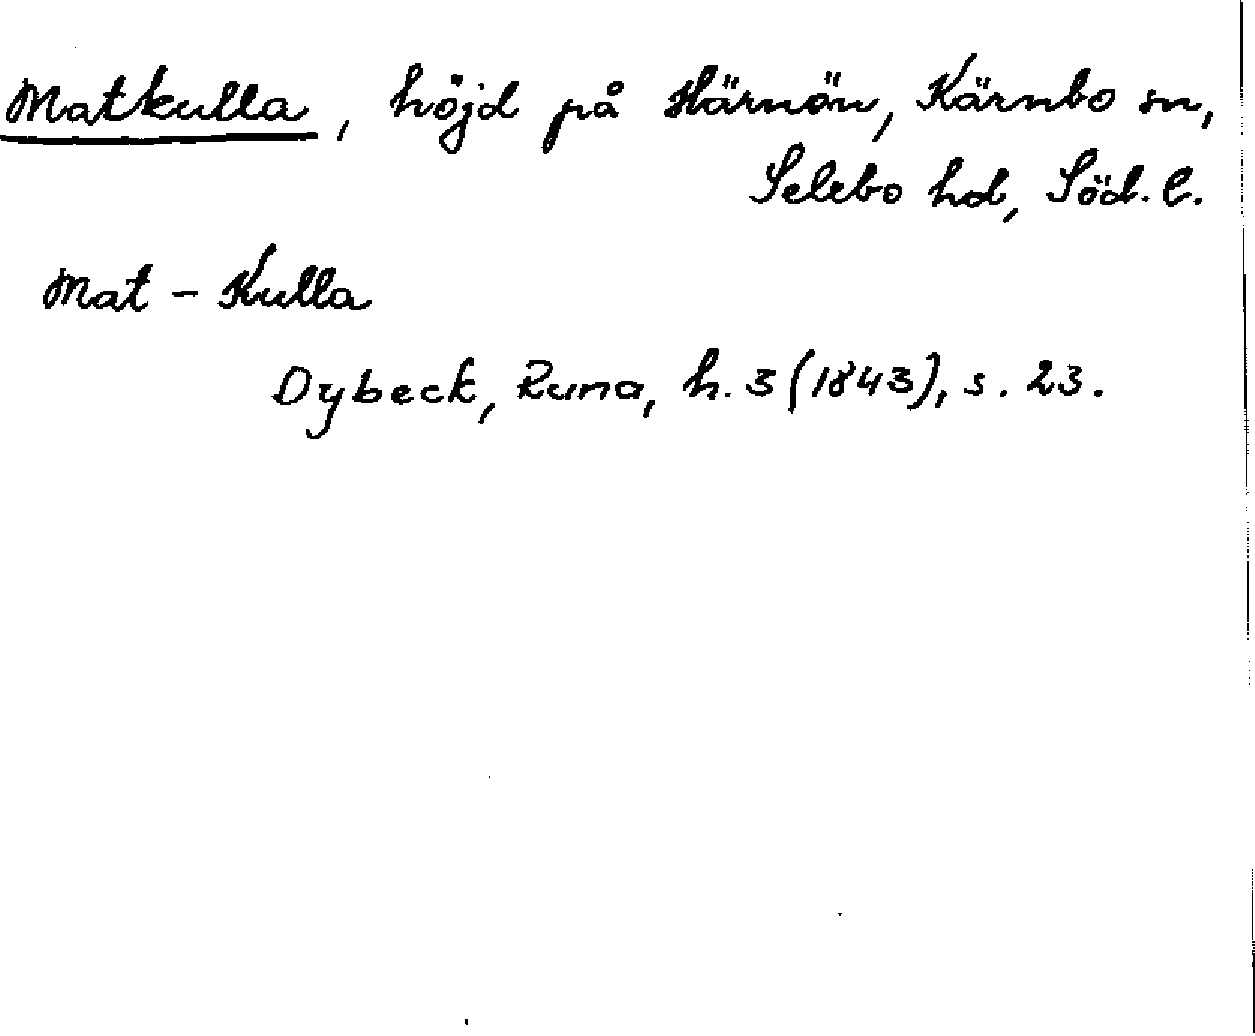 Matkulla, höjd på Härnön, Kärnbo sn,
Selebo hd, Söd. l.
Mat-Kulla
Dybeck, Runa, h. 3 (1843), s. 23.